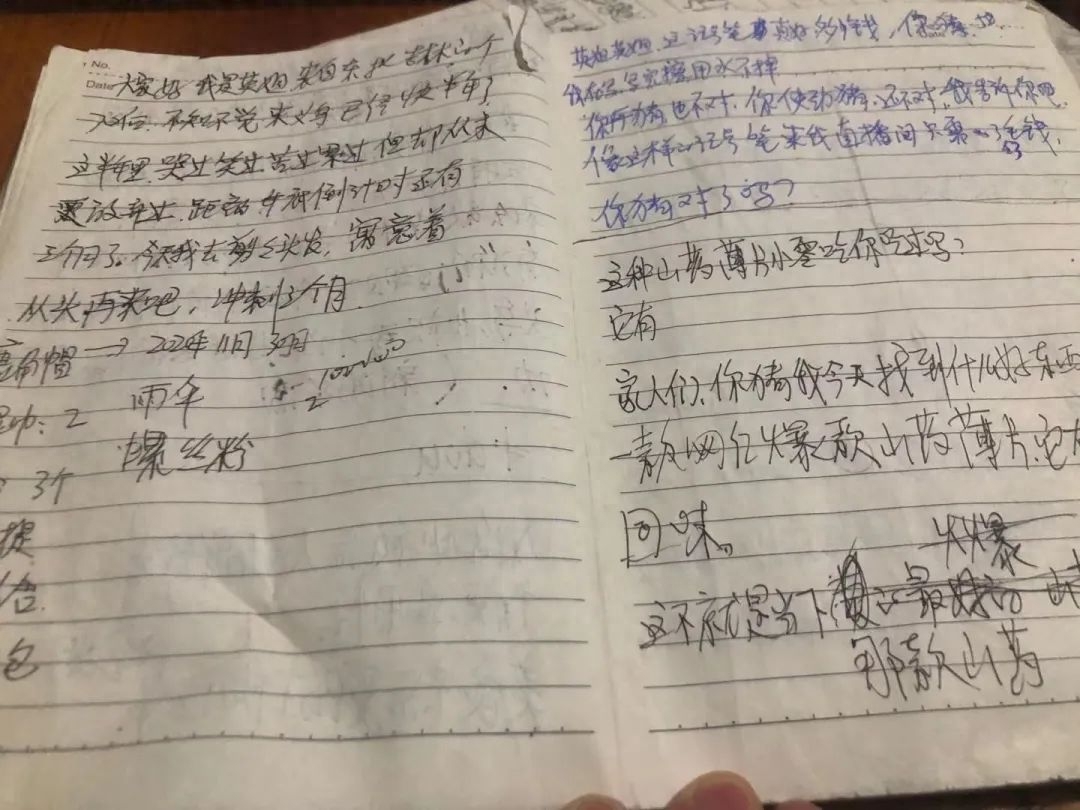 No.
Date
大家好 我是英姐 来自东北 吉林的一个
不知不觉来义乌已经快半年了
这半年里 哭过笑过苦过累过 但却从未
放弃过. 距离 年前倒计时还有
三个月了。今天我去剪了头发, 寓意着
从头再来吧, 冲刺3个月
帽 → 2024年11月30日
雨伞
2
螺丝粉
3个
提
合.
包
英姐英姐 这记号笔 真好 多少钱, 你猜
用水不掉
你再猜也不对, 你使劲猜, 还不对, 我告诉你吧
像这样的记号笔 来我直播间 只需 毛钱
你猜对了吗?
这种山药薄片小零吃你吃过吗?
它有
家人们, 你猜我今天找到什么好东西
一款网红火爆款山药薄片, 它
回味。
火爆
这不就是当下 最
那款山药